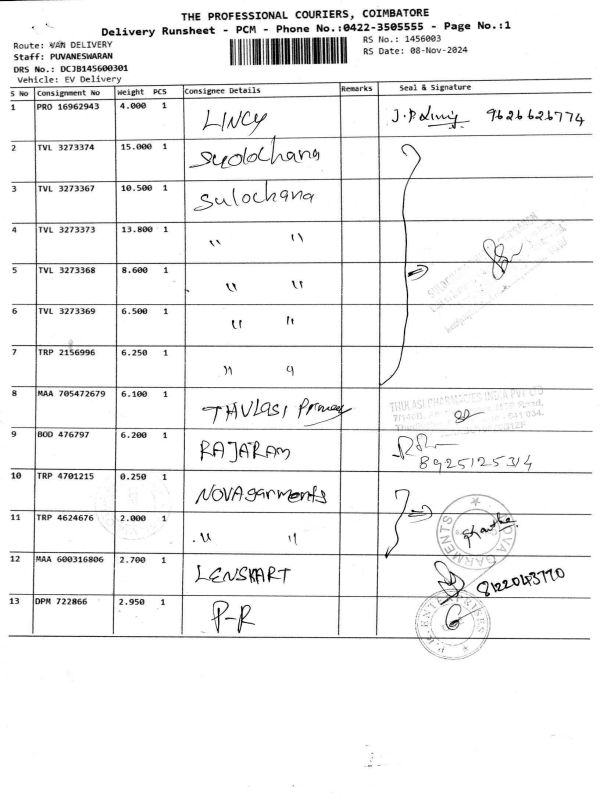 THE PROFESSIONAL COURIERS, COIMBATORE
Delivery Runsheet - PCM - Phone No.:0422-3505555 - Page No.:1
Route: VAN DELIVERY
RS No.: 1456003
Staff: PUVANESWARAN
RS Date: 08-Nov-2024
DRS No.: DCJB145600301
Vehicle: EV Delivery
S No Consignment No Weight PCS Consignee Details Remarks Seal & Signature
1 PRO 16962943 4.000 1 LINCY 9626626774
2 TVL 3273374 15.000 1 Sulochana
3 TVL 3273367 10.500 1 Sulochana
4 TVL 3273373 13.800 1 " "
5 TVL 3273368 8.600 1 " "
6 TVL 3273369 6.500 1 " "
7 TRP 2156996 6.250 1 " "
8 MAA 705472679 6.100 1 THULASI THULASI PHARMACIES INDIA PVT LTD
9 BOD 476797 6.200 1 RAJARAM 8925125314
10 TRP 4701215 0.250 1 NOVA garments
11 TRP 4624676 2.000 1 " " NOVA GARMENTS
12 MAA 600316806 2.700 1 LENSKART 8122043770
13 DPM 722866 2.950 1 P-R P.R. ENTERPRISES